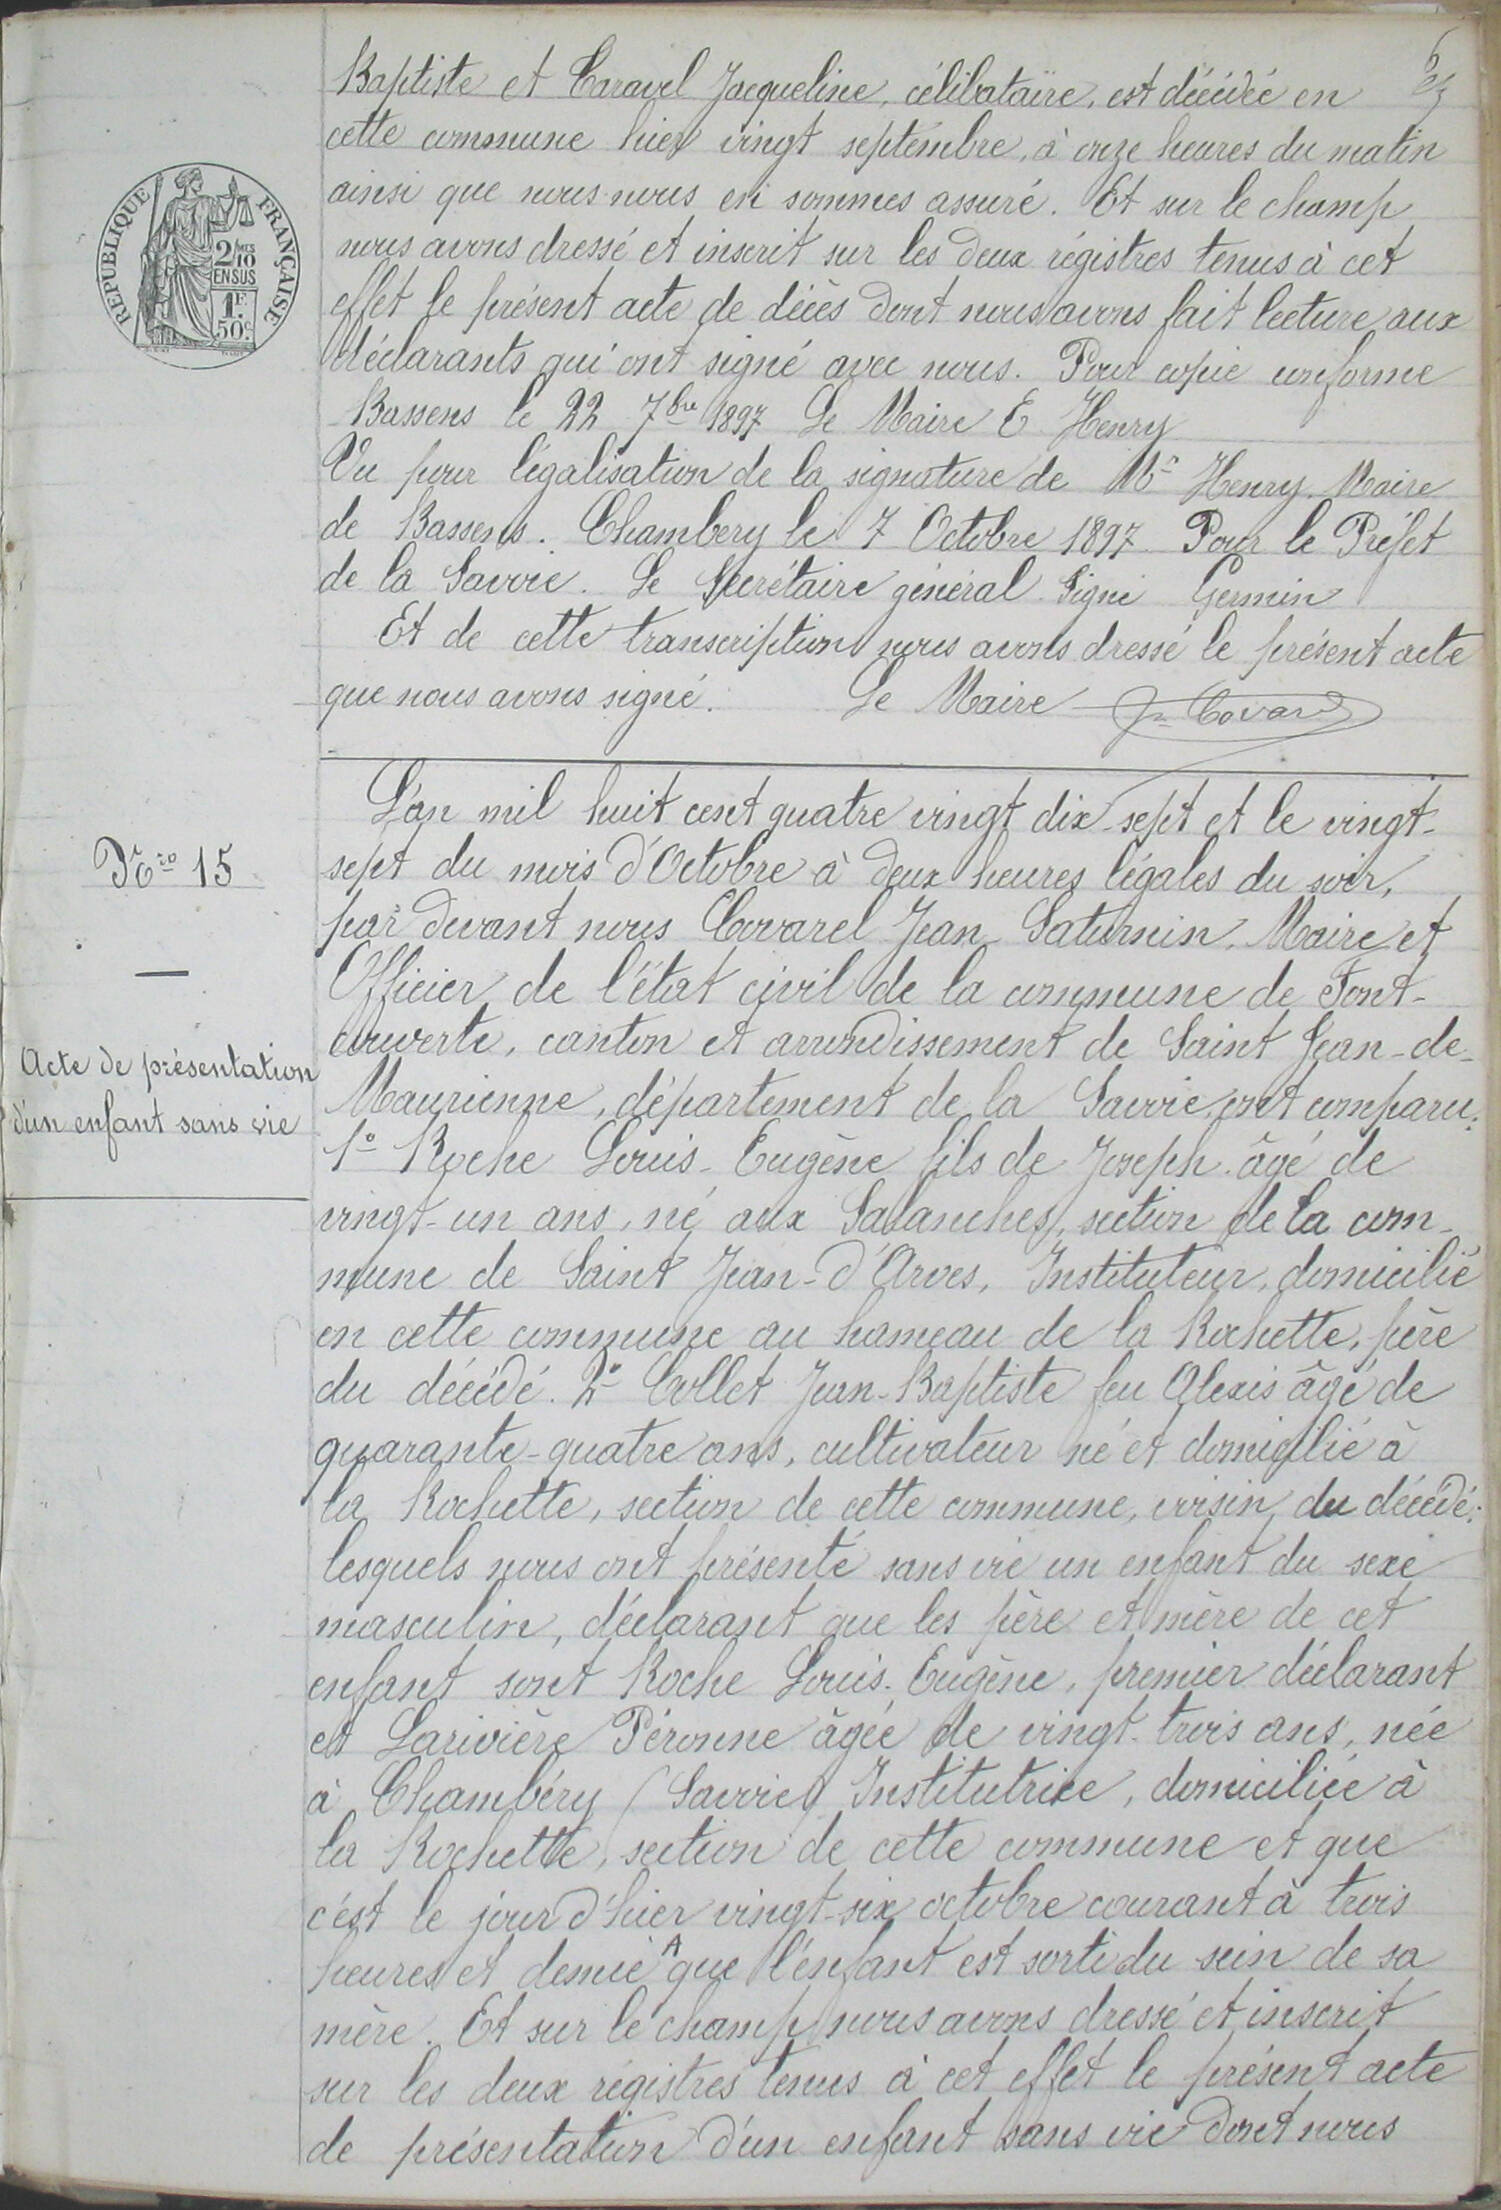 Baptiste et Caravel Jacqueline, célibataire, est décédée en
cette commune hier vingt septembre, à onze heures du matin
ainsi que nous nous en sommes assuré. Et sur le champ
nous avons dressé et inscrit sur les deux régistres tenus à cet
effet le présent acte de décès dont nous avons fait lecture aux
déclarants qui ont signé avec nous. Pour copie conforme
Bassens le 22 7bre 1897 Le Maire E Henry
Vu pour légalisation de la signature de Mr Henry Maire
de Bassens. Chambery le 7 Octobre 1897 Pour le Préfet
de la Savoie. Le Secrétaire général Signé Germin
Et de cette transcription nous avons dressé le présent acte
que nous avons signé. Le Maire Jn Covarel
RÉPUBLIQUE FRANÇAISE
2/10 EN SUS
1F. 50c.
Nro 15
Acte de présentation
d'un enfant sans vie
L'an mil huit cent quatre vingt dix-sept et le vingt-
sept du mois d'Octobre à deux heures légales du soir,
par devant nous Covarel Jean Saturnin, Maire et
Officier de l'état civil de la commune de Font-
couverte, canton et arrondissement de Saint Jean-de-
Maurienne, département de la Savoie, ont comparu:
1° Roche Louis-Eugène fils de Joseph âgé de
vingt-un ans, né aux Salanches, section de la com-
mune de Saint Jean-d'Arves, Instituteur, domicilié
en cette commune au hameau de la Rochette, père
du décédé. 2° Collet Jean-Baptiste feu Alexis âgé de
quarante-quatre ans, cultivateur né et domicilié à
la Rochette, section de cette commune, voisin du décédé:
lesquels nous ont présenté sans vie un enfant du sexe
masculin, déclarant que les père et mère de cet
enfant sont Roche Louis-Eugène, premier déclarant
et Larivière Péronne âgée de vingt-trois ans, née
à Chambéry (Savoie) Institutrice, domiciliée à
la Rochette, section de cette commune et que
c'est le jour d'hier vingt-six octobre courant à trois
heures et demie A que l'enfant est sorti du sein de sa
mère. Et sur le champ nous avons dressé et inscrit
sur les deux régistres tenus à cet effet le présent acte
de présentation d'un enfant sans vie dont nous